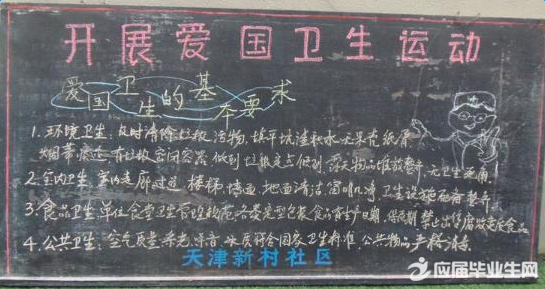 开展爱国卫生运动
爱国卫生的基本要求
1. 环境卫生:及时清除垃圾、污物,填平坑洼积水,无果壳纸屑
烟蒂痰迹,有垃圾密闭容器,做到垃圾定点倒,露天物品堆放整齐,无卫生死角
2. 室内卫生:室内走廊过道、楼梯、墙面、地面清洁,窗明几净,卫生设施
3. 食品卫生:单位食堂卫生管理规范,各类定型包装食品有生产日期、保质期,禁止出售腐败变质食品
4. 公共卫生:空气质量、采光、噪音、水质符合国家卫生标准,公共物品严格消毒
天津新村社区
应届毕业生网